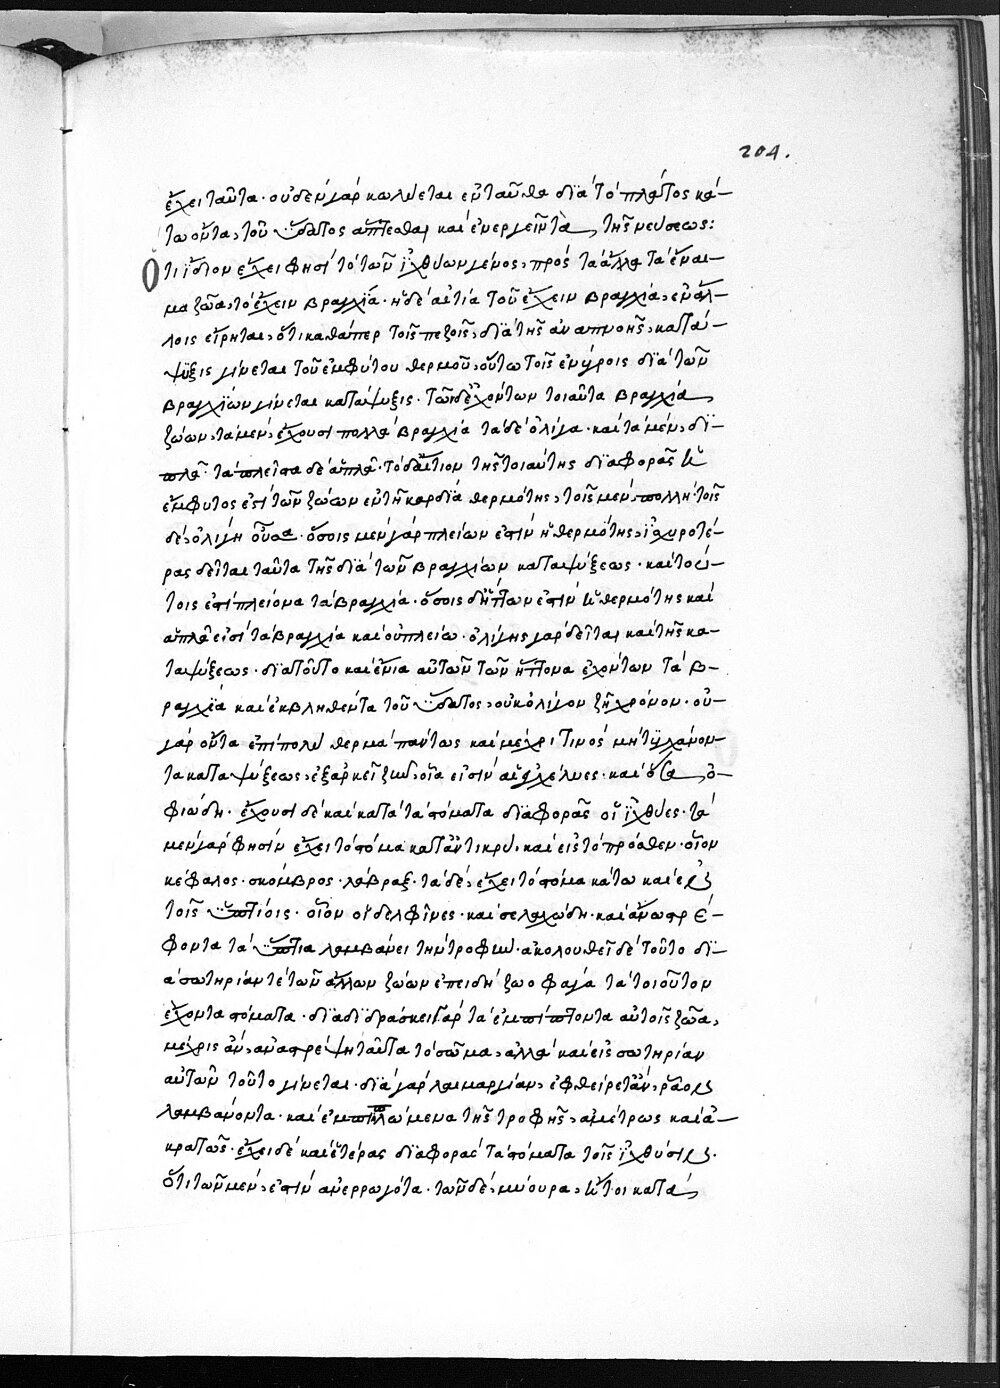 204.
ἔχει ταῦτα· οὐδὲν γὰρ κωλύεται ἐνταῦθα διὰ τὸ πλάτος κά-
τω ὄντα, τοῦ ὕδατος ἅπτεσθαι καὶ ἐνεργεῖν τὰ τῆς νεύσεως:
Ὅτι ἴδιον ἔχει φησὶ τὸ τῶν ἰχθύων γένος, πρὸς τὰ ἄλλα τὰ ἔναι-
μα ζῶα, τὸ ἔχειν βραγχία· ἡ δὲ αἰτία τοῦ ἔχειν βραγχία, ἐν ἄλ-
λοις εἴρηται, ὅτι καθάπερ τοῖς πεζοῖς, διὰ τῆς ἀναπνοῆς, κατά-
ψυξις γίνεται τοῦ ἐμφύτου θερμοῦ, οὕτω τοῖς ἐνύγροις διὰ τῶν
βραγχίων γίνεται κατάψυξις· τῶν δὲ ἐχόντων τοιαῦτα βραγχία
ζώων, τὰ μὲν, ἔχουσι πολλὰ βραγχία τὰ δὲ ὀλίγα· καὶ τὰ μὲν, δι-
πλᾶ· τὰ πλεῖστα δὲ ἁπλᾶ· τὸ δ' αἴτιον τῆς τοιαύτης διαφορᾶς ἡ
ἔμφυτος ἐστὶ τῶν ζώων ἐν τῇ καρδία θερμότης, τοῖς μὲν, πολλὴ τοῖς
δὲ, ὀλίγη οὖσα· ὅσοις μὲν γὰρ πλείων ἐστὶν ἡ θερμότης, ἰσχυροτέ-
ρας δεῖται ταῦτα τῆς διὰ τῶν βραγχίων καταψύξεως· καὶ τού-
τοις ἐστὶ πλείονα τὰ βραγχία· ὅσοις δ' ἥττων ἐστὶν ἡ θερμότης καὶ
ἁπλᾶ εἰσὶ τὰ βραγχία καὶ οὐ πλείω· ὀλίγης γὰρ δεῖται καὶ τῆς κα-
ταψύξεως· διὰ τοῦτο καὶ ἔνια αὐτῶν τῶν ἥττονα ἐχόντων τὰ β-
ραγχία καὶ ἐκβληθέντα τοῦ ὕδατος, οὐκ ὀλίγον ζῆ χρόνον· οὐ
γὰρ ὄντα ἐπὶ πολὺ θερμὰ πάντως καὶ μέχρι τινὸς μὴ τυγχάνον-
τα καταψύξεως, ἐξαρκεῖ ζῆν, οἷα εἰσὶν αἱ ἐγχέλυες· καὶ ὅσα ὀ-
φιώδη· ἔχουσι δὲ καὶ κατὰ τὰ στόματα διαφορᾶς οἱ ἰχθύες· τὰ
μὲν γὰρ φησὶν ἔχει τὸ στόμα κατ' ἀντικρὺ, καὶ εἰς τὸ πρόσθεν· οἷον
κέφαλος· σκόμβρος· λάβραξ· τὰ δὲ, ἔχει τὸ στόμα κάτω καὶ ἐν
τοῖς ὑπτίοις· οἷον οἱ δελφῖνες· καὶ σελαχώδη· καὶ ἄνω στρέ-
φοντα τὰ ὕπτια λαμβάνει τὴν τροφήν· ἀκολουθεῖ δὲ τοῦτο δι-
ὰ σωτηρίαν τὲ τῶν ἄλλων ζώων ἐπειδὴ ζωοφαγὰ τὰ τοιοῦτον
ἔχοντα στόματα· διαδιδράσκει γὰρ τὰ ἐμπίπτοντα αὐτοῖς ζῶα,
μέχρις ἂν, ἀναστρέψη ταῦτα τὸ σῶμα, ἀλλὰ καὶ εἰς σωτηρίαν
αὐτῶν τοῦτο γίνεται· διὰ γὰρ λαιμαργίαν, ἐφθείρετ' ἂν, ῥᾶον
λαμβάνοντα· καὶ ἐμπιπλώμενα τῆς τροφῆς, ἀμέτρως καὶ ἀ-
κρατῶς· ἔχει δὲ καὶ ἑτέρας διαφορὰς τὰ στόματα τοῖς ἰχθύσιν·
ὅτι τῶν μὲν, ἐστὶν ἀνερρωγότα· τῶν δὲ, μύουρα, ἤτοι κατὰ